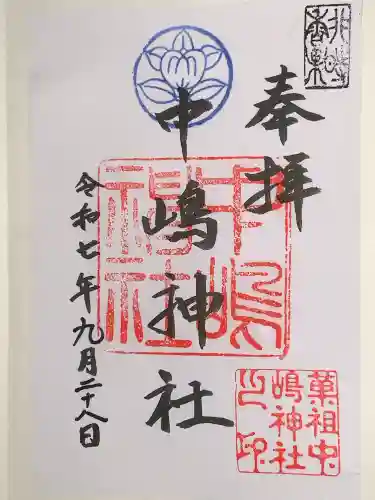 非時
香菓
奉拝
中嶋神社
令和七年九月二十八日
中嶋
神社
菓祖中
嶋神社
之印